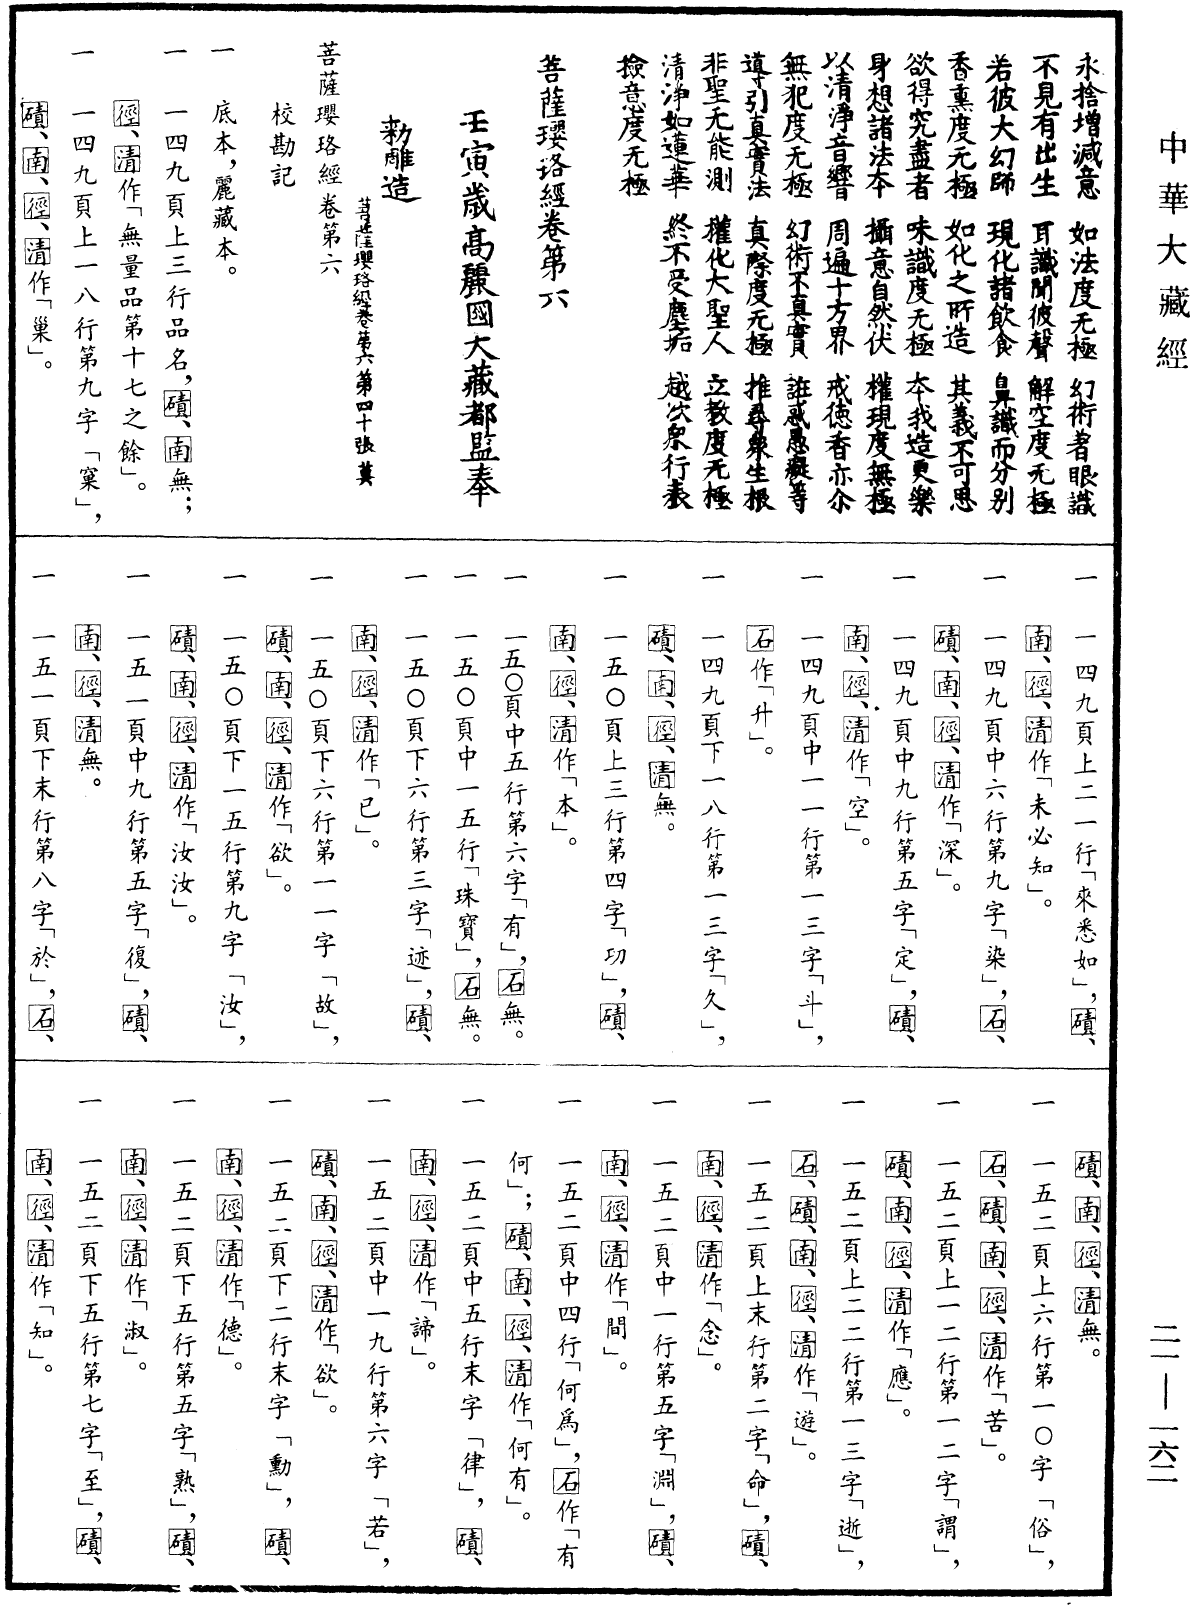 中華大藏經
永捨增減意 如法度无極 幻術著眼識
不見有出生 耳識聞彼聲 解空度无極
若彼大幻師 現化諸飲食 鼻識而分別
香熏度无極 如化之所造 其義不可思
欲得究盡者 味識度无極 本我造更樂
身想諸法本 攝意自然伏 權現度無極
以清淨音響 周遍十方界 戒德香亦尒
無犯度无極 幻術不真實 誑惑愚癡等
導引真實法 真際度无極 推尋衆生根
非聖无能測 權化大聖人 立教度无極
清淨如蓮華 終不受塵垢 越次衆行表
撿意度无極
菩薩瓔珞經卷第六
壬寅歲高麗國大藏都監奉
勅雕造
菩薩瓔珞經卷第六第四十張 莫
菩薩瓔珞經卷第六
校勘記
一 底本，麗藏本。
一 一四九頁上三行品名，磧、南無；
徑、清作「無量品第十七之餘」。
一 一四九頁上一八行第九字「窠」，
磧、南、徑、清作「巢」。
一 一四九頁上二一行「來悉如」，磧、
南、徑、清作「未必知」。
一 一四九頁中六行第九字「染」，石、
磧、南、徑、清作「深」。
一 一四九頁中九行第五字「定」，磧、
南、徑、清作「空」。
一 一四九頁中一一行第一三字「斗」，
石作「升」。
一 一四九頁下一八行第一三字「久」，
磧、南、徑、清無。
一 一五〇頁上三行第四字「功」，磧、
南、徑、清作「本」。
一 一五〇頁中五行第六字「有」，石無。
一 一五〇頁中一五行「珠寶」，石無。
一 一五〇頁下六行第三字「迹」，磧、
南、徑、清作「已」。
一 一五〇頁下六行第一一字「故」，
磧、南、徑、清作「欲」。
一 一五〇頁下一五行第九字「汝」，
磧、南、徑、清作「汝汝」。
一 一五一頁中九行第五字「復」，磧、
南、徑、清無。
一 一五一頁下末行第八字「於」，石、
磧、南、徑、清無。
一 一五二頁上六行第一〇字「俗」，
石、磧、南、徑、清作「苦」。
一 一五二頁上一二行第一二字「謂」，
磧、南、徑、清作「應」。
一 一五二頁上二二行第一三字「逝」，
石、磧、南、徑、清作「遊」。
一 一五二頁上末行第二字「命」，磧、
南、徑、清作「念」。
一 一五二頁中一行第五字「淵」，磧、
南、徑、清作「間」。
一 一五二頁中四行「何爲」，石作「有
何」；磧、南、徑、清作「何有」。
一 一五二頁中五行末字「律」，磧、
南、徑、清作「諦」。
一 一五二頁中一九行第六字「若」，
磧、南、徑、清作「欲」。
一 一五二頁下二行末字「勳」，磧、
南、徑、清作「德」。
一 一五二頁下五行第五字「熟」，磧、
南、徑、清作「淑」。
一 一五二頁下五行第七字「至」，磧、
南、徑、清作「知」。
二一—一六二